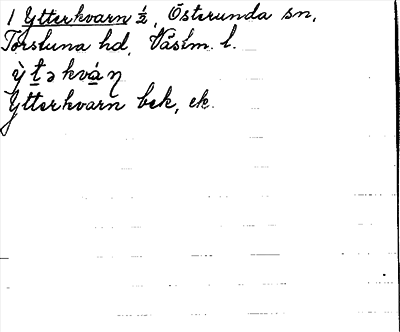 1 Ytterkvarn ½, Österunda sn,
Torstuna hd, Västm. l.
ỳt̲ə kvá̲ɳ
Ytterkvarn bek, ek.